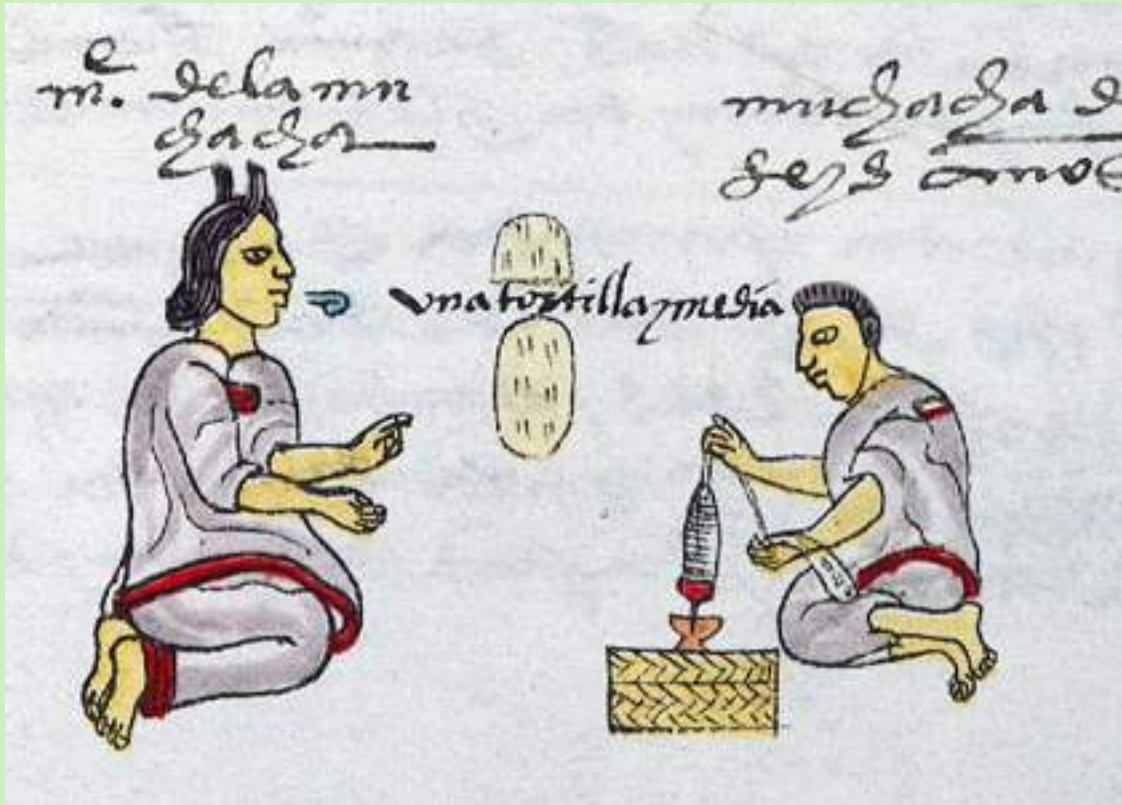 me. de la mu
chacha
muchacha d
seys años
una tortilla y media